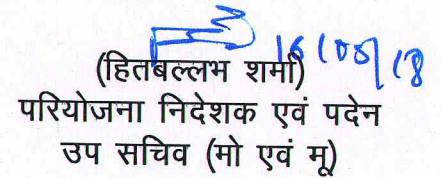 16/05/18
(हितबल्लभ शर्मा)
परियोजना निदेशक एवं पदेन
उप सचिव (मो एवं मू)